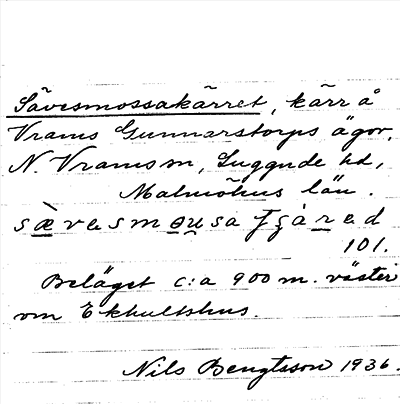 Sävesmossakärret, kärr å
Vrams Gunnarstorps ägor,
N. Vrams sn, Luggude hd,
Malmöhus län.
sævesmousa
101.
Beläget c:a 900 m. väster
om Ekhultshus.
Nils Bengtsson 1936.